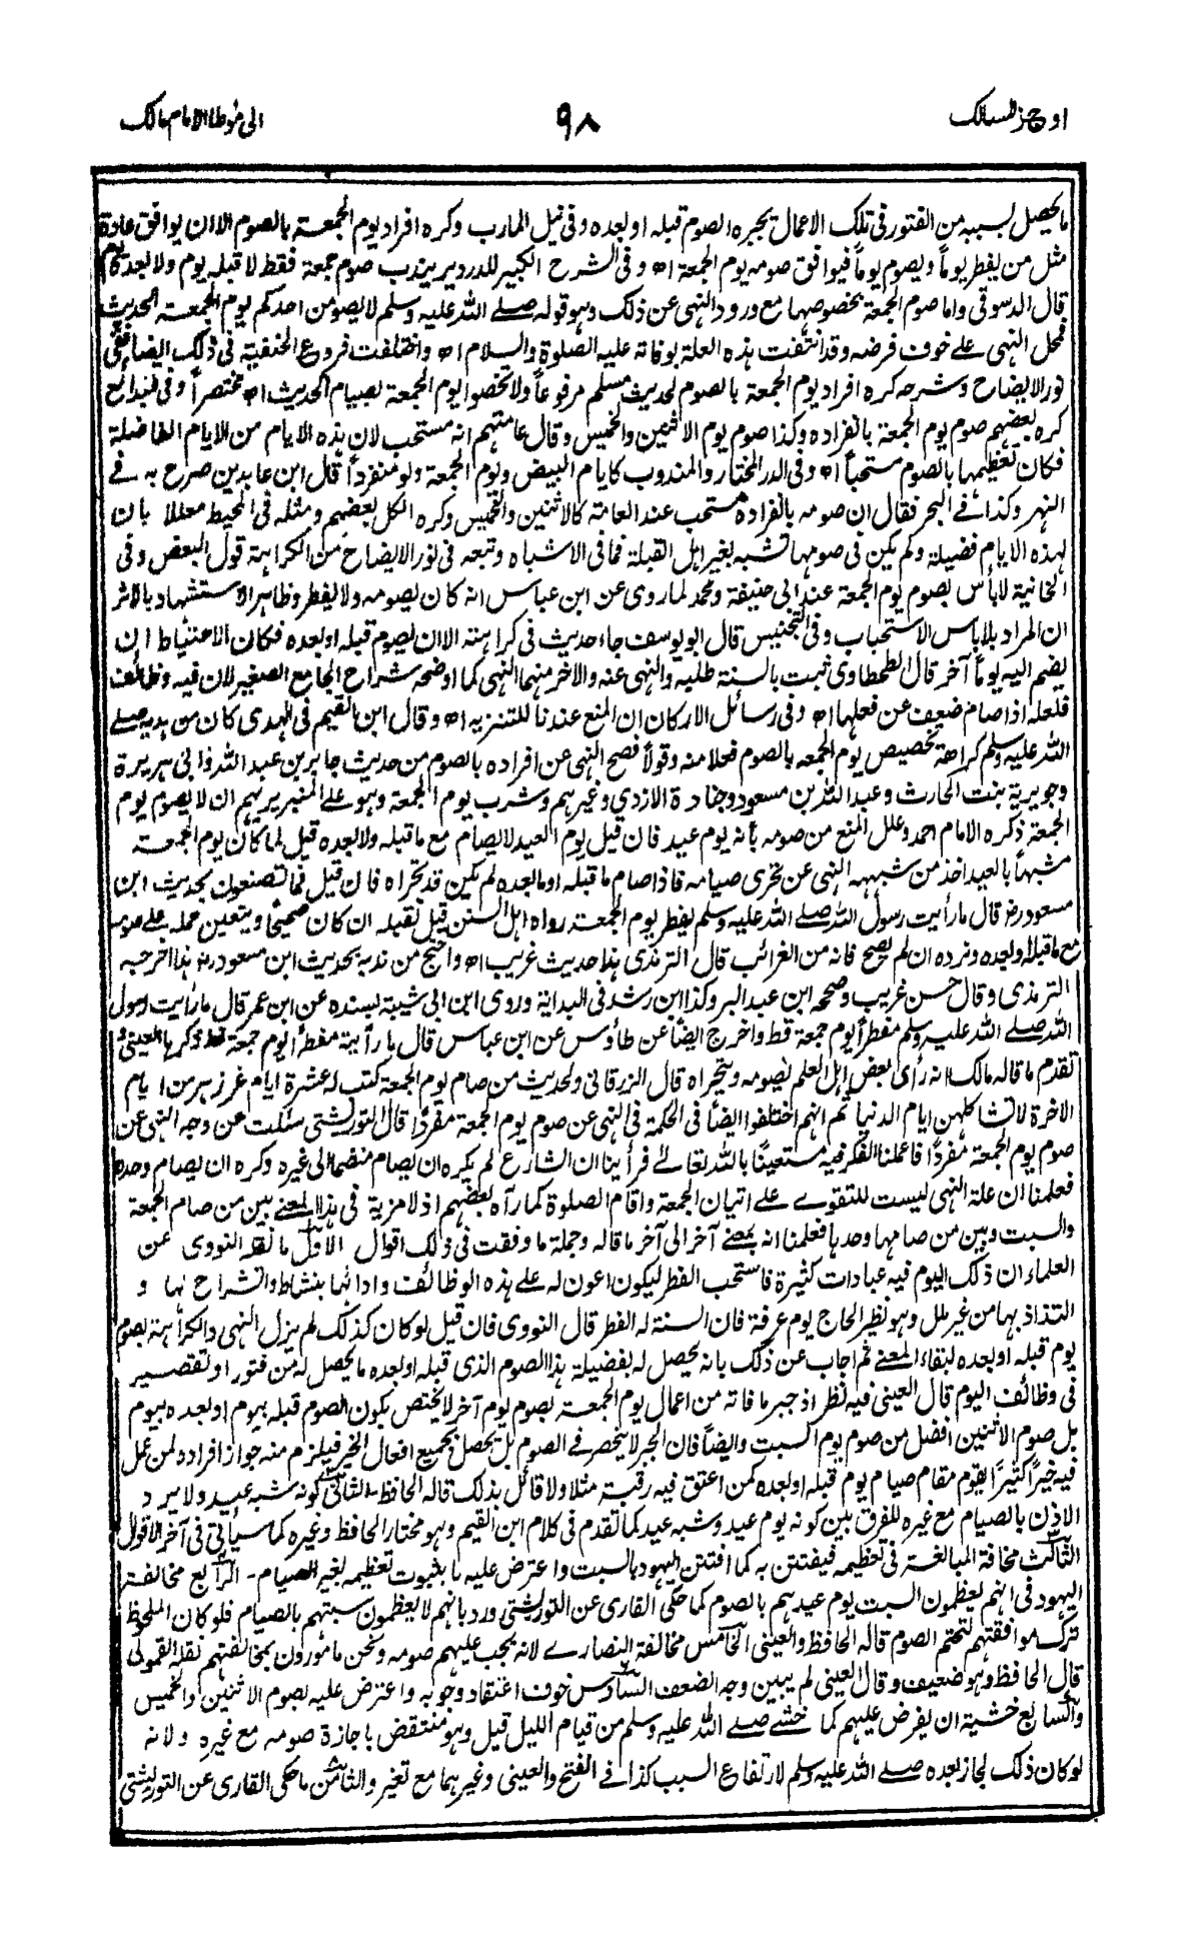 اوجز المسالك ٩٨ الى موطا الامام مالك
ما يحصل بسببه من الفتور فى تلك الاعمال يجبره الصوم قبله او بعده وفى نيل المارب وكره افراد يوم الجمعة بالصوم الا ان يوافق عادة
مثل من يفطر يوماً ويصوم يوماً فيوافق صومه يوم الجمعة اھ وفى الشرح الكبير للدردير يندب صوم جمعة فقط لا قبله يوم ولا بعده يوم
قال الدسوقى واما صوم الجمعة بخصوصها مع ورود النهى عن ذلك وهو قوله صلے الله عليه وسلم لا يصومن احدكم يوم الجمعة الحديث
فمحل النهى على خوف فرضه وقد انتفت هذه العلة بوفاته عليه الصلوة والسلام اھ واختلفت فروع الحنفية فى ذلك ايضا ففى
نور الايضاح وشرحه كره افراد يوم الجمعة بالصوم لحديث مسلم مرفوعاً ولا تخصوا يوم الجمعة بصيام الحديث اھ مختصراً وفى البدائع
كره بعضهم صوم يوم الجمعة بانفراده وكذا صوم يوم الاثنين والخميس وقال عامتهم انه مستحب لان هذه الايام من الايام الفاضلة
فكان تعظيمها بالصوم مستحباً اھ وفى الدر المختار والمندوب كايام البيض ويوم الجمعة ولو منفرداً قال ابن عابدين صرح به فے
النهر وكذا فے البحر فقال ان صومه بانفراده مستحب عند العامة كالاثنين والخميس وكره الكل بعضهم ومثله فى المحيط معللا بان
لهذه الايام فضيلة ولم يكن فى صومها تشبه بغير اهل القبلة فما فى الاشباه وتبعه فى نور الايضاح من الكراهة قول البعض وفى
الخانية لا باس بصوم يوم الجمعة عند ابى حنيفة ومحمد لما روى عن ابن عباس انه كان يصومه ولا يفطر وظاهر الاستشهاد بالاثر
ان المراد بلا باس الاستحباب وفى التجنيس قال ابو يوسف جاء حديث فى كراهته الا ان يصوم قبله او بعده فكان الاحتياط ان
يضم اليه يوماً آخر قال الطحطاوى ثبت بالسنة طلبه والنهى عنه والاخر منهما النهى كما اوضحه شراح الجامع الصغير لان فيه وظائف
فلعله اذا صام ضعف عن فعلها اھ وفى رسائل الاركان ان المنع عندنا للتنزيه اھ وقال ابن القيم فى الهدى كان من هديه صلے
الله عليه وسلم كراهة تخصيص يوم الجمعه بالصوم فعلا منه وقولاً فصح النهى عن افراده بالصوم من حديث جابر بن عبد الله وابى هريرة
وجويرية بنت الحارث وعبد الله بن مسعود وجنادة الازدى وغيرهم وشرب يوم الجمعة وهو على المنبر يريهم ان لا يصوم يوم
الجمعة ذكره الامام احمد وعلل المنع من صومه بأنه يوم عيد فان قيل يوم العيد لا يصام مع ما قبله ولا بعده قيل لما كان يوم الجمعة
مشبهاً بالعيد اخذ من شبهه النهى عن تحرى صيامه فاذا صام ما قبله او ما بعده لم يكن قد تحراه فان قيل فما تصنعون بحديث ابن
مسعود رض قال ما رأيت رسول الله صلے الله عليه وسلم يفطر يوم الجمعة رواه اهل السنن قيل نقبله ان كان صحيحاً ويتعين حمله على صومه
مع ما قبله او بعده ونرده ان لم يصح فانه من الغرائب قال الترمذى هذا حديث غريب اھ واحتج من ندبه بحديث ابن مسعود رض هذا اخرجه
الترمذى وقال حسن غريب وصححه ابن عبد البر وكذا ابن رشد فى البداية وروى ابن ابى شيبة بسنده عن ابن عمر قال ما رأيت رسول
الله صلے الله عليه وسلم مفطراً يوم جمعة قط واخرج ايضاً عن طاؤس عن ابن عباس قال ما رأيته مفطراً يوم جمعة قط ذكرها العينى و
تقدم ما قاله مالك انه رأى بعض اهل العلم يصومه ويتحراه قال الزرقانى ولحديث من صام يوم الجمعة كتب له عشرة ايام غرر زهر من ايام
الاخرة لا تشاكلهن ايام الدنيا ثم انهم اختلفوا ايضاً فى الحكمة فى النهى عن صوم يوم الجمعة مفرداً قال التوربشتى سئلت عن وجه النهى عن
صوم يوم الجمعة مفرداً فاعملنا الفكر فيه مستعيناً بالله تعالے فرأينا ان الشارع لم يكره ان يصام منضما الى غيره وكره ان يصام وحده
فعلمنا ان علة النهى ليست للتقوے علے اتيان الجمعة واقام الصلوة كما رآه بعضهم اذ لا مزية فى هذا المعنے بين من صام الجمعة
والسبت وبين من صامها وحدها فعلمنا انه بمعنے آخر الى آخر ما قاله وجملة ما وقفت فى ذلك اقوال الاول ما نقله النووى عن
العلماء ان ذلك اليوم فيه عبادات كثيرة فاستحب الفطر ليكون اعون له على هذه الوظائف وادائها بنشاط وانشراح بها و
التذاذ بها من غير ملل وهو نظير الحاج يوم عرفة فان السنة له الفطر قال النووى فان قيل لو كان كذلك لم يزل النهى والكراهة بصوم
يوم قبله او بعده لبقاء المعنے ثم اجاب عن ذلك بانه يحصل له بفضيلة هذا الصوم الذى قبله او بعده ما يحصل له من فتور او تقصير
فى وظائف اليوم قال العينى فيه نظر اذ جبر ما فاته من اعمال يوم الجمعة بصوم يوم آخر لا يختص بكون الصوم قبله بيوم او بعده بيوم
بل صوم الاثنين افضل من صوم يوم السبت وايضاً فان الجبر لا ينحصر فے الصوم بل يحصل بجميع افعال الخير فيلزم منه جواز افراده لمن عمل
فيه خيراً كثيراً يقوم مقام صيام يوم قبله او بعده كمن اعتق فيه رقبة مثلا ولا قائل بذلك قاله الحافظ۔ الثانى كونه شبه عيد ولا يرد
الاذن بالصيام مع غيره للفرق بين كونه يوم عيد وشبه عيد كما تقدم فى كلام ابن القيم وهو مختار الحافظ وغيره كما سيأتى فى آخر الاقوال
الثالث مخافة المبالغة فى تعظيمه فيفتتن به كما افتتن اليهود بالسبت واعترض عليه بثبوت تعظيمه بغير الصيام۔ الرابع مخالفة
اليهود فى انهم يعظمون السبت يوم عيدهم بالصوم كما حكى القارى عن التوربشتى ورد بانهم لا يعظمون سبتهم بالصيام فلو كان الملحوظ
ترك موافقتهم لتحتم الصوم قاله الحافظ والعينى الخامس مخالفة النصارے لانه يجب عليهم صومه ونحن مامورون بمخالفتهم نقله القمولى
قال الحافظ وهو ضعيف وقال العينى لم يبين وجه الضعف السادس خوف اعتقاد وجوبه واعترض عليه بصوم الاثنين والخميس
والسابع خشية ان يفرض عليهم كما خشے صلے الله عليه وسلم من قيام الليل قيل وهو منتقض باجازة صومه مع غيره ولانه
لو كان ذلك لجاز بعده صلے الله عليه وسلم لارتفاع السبب كذا فے الفتح والعينى وغيرهما مع تغير والثامن ما حكى القارى عن التوربشتى